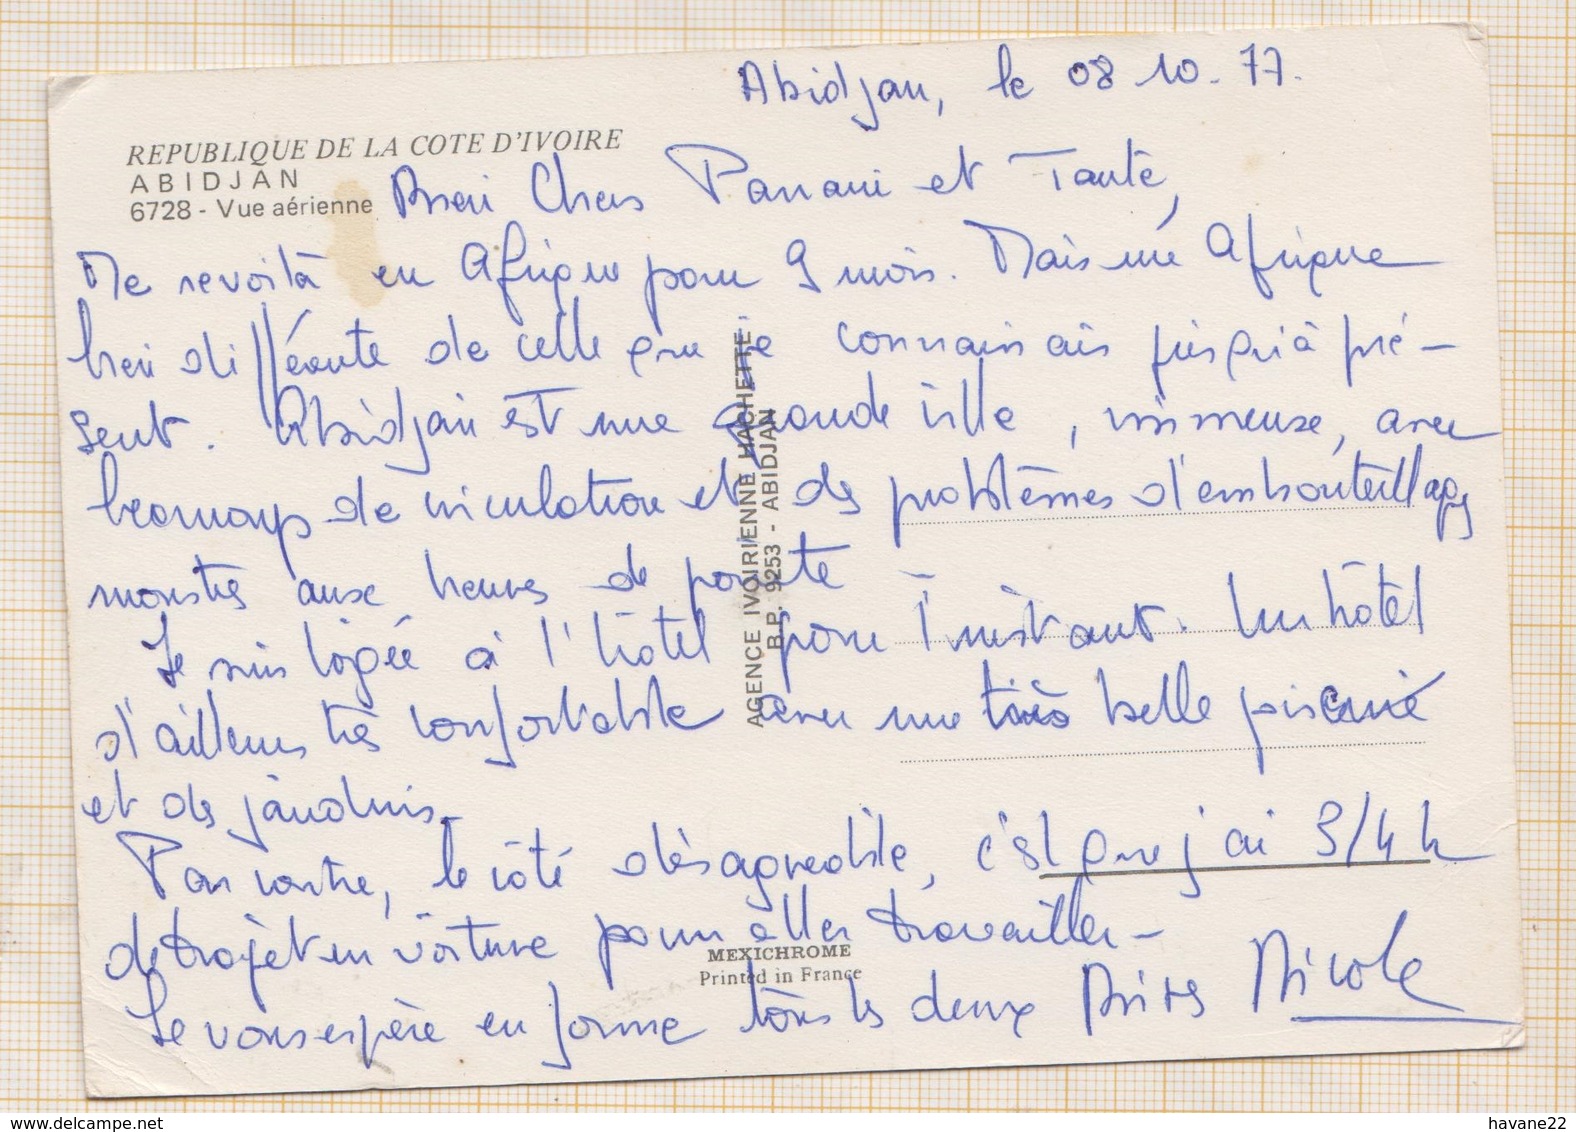 Abidjan, le 08.10.77.
REPUBLIQUE DE LA COTE D'IVOIRE
ABIDJAN
6728 - Vue aérienne
Bien Chers Parrain et Tante,
Me revoilà en Afrique pour 9 mois. Mais une Afrique
bien différente de celle que je connaissais jusqu'à pré-
sent. Abidjan est une grande ville, immense, avec
beaucoup de circulation et des problèmes d'embouteillages
monstres aux heures de pointe.
Je suis logée à l'hôtel pour l'instant. Un hôtel
d'ailleurs très confortable avec une très belle piscine
et des jardins.
Par contre, le côté désagréable, c'est que j'ai 3/4 h
de trajet en voiture pour aller travailler -
Je vous espère en forme tous les deux Bises Nicole
AGENCE IVOIRIENNE HACHETTE
B.P. 9253 - ABIDJAN
MEXICHROME
Printed in France
havane22
delcampe.net